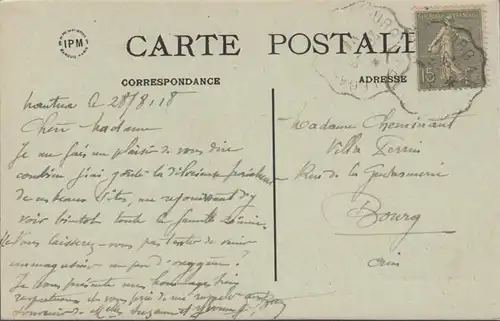 IPM
CARTE POSTALE
CORRESPONDANCE
ADRESSE
15
Nantua le 28/8/18
Chère Madame
Je me fais un plaisir de vous dire
combien j'ai goûté la délicieuse fraîcheur
de ces beaux sites, me réjouissant d'y
voir bientôt toute la famille
Vous laisserez-vous pas tenter de venir
emmagasiner un peu d'oxygène?
Je vous présente mes hommages
respectueux et vous prie de me rappeler au bon
souvenir de Melles Suzanne et Yvonne
Madame Cheminant
Villa Perrin
Rue de la Gendarmerie
Bourg
Ain